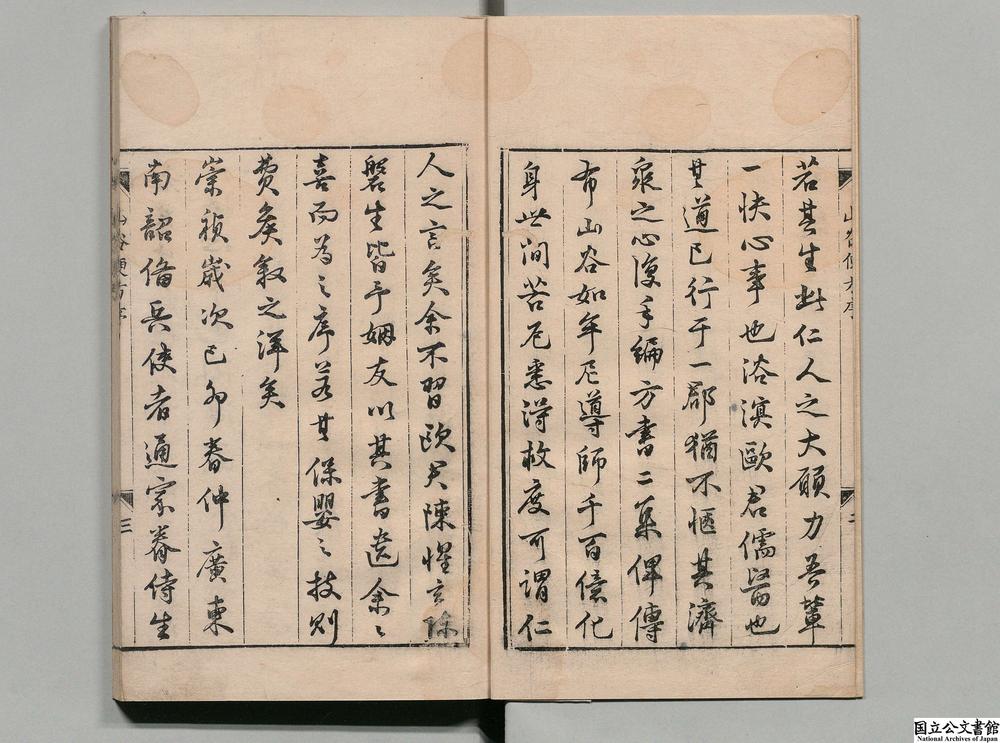 若其生此仁人之大願力吾輩
一快心事也浴溟歐君儒醫也
其道已行于一郡猶不愜其濟
衆之心復手編方書二集俾傳
布山谷如牟尼導師千百億化
身世間苦厄悉得救度可謂仁
二
人之言矣余不習歐君陳惺玄陳
磐生皆予姻友以其書遺余々
喜而為之序若其保嬰之技則
費矣叙之渾矣
崇禎歲次己卯春仲廣東
南韶備兵使者通家眷侍生
山谷便方序
三
国立公文書館
National Archives of Japan